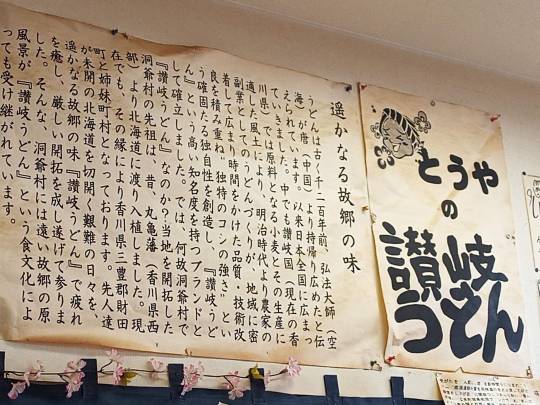 とうや
の
讃岐
うどん
遥かなる故郷の味
うどんは古く千二百年前、弘法大師（空
海）が唐（中国）より持帰り広めたと伝
えられています。以来日本全国に広まっ
ていきました。中でも讃岐国（現在の香
川県）では原料となる小麦とその生産に
適した風土により、明治時代より農家の
副業としてのうどんづくりが、地域に密
着して広まり時間をかけた品質・技術改
良を積み重ね"独特のコシの強さ"とい
う確固たる独自性を創造し、『讃岐うど
ん』という高い知名度を持つブランドと
して確立しました。では、何故洞爺村で
『讃岐うどん』なのか？当地を開拓した
洞爺村の先祖は、昔、丸亀藩（香川県西
部）より北海道に渡り入植しました。現
在でも、その縁により香川県三豊郡財田
町と姉妹町村となっております。先人達
が未開の北海道を切開く艱難の日々を、
遥かなる故郷の味『讃岐うどん』で疲れ
を癒し、厳しい開拓を成し遂げて参りま
した。そんな、洞爺村には遠い故郷の原
風景が『讃岐うどん』という食文化によ
っても受け継がれています。